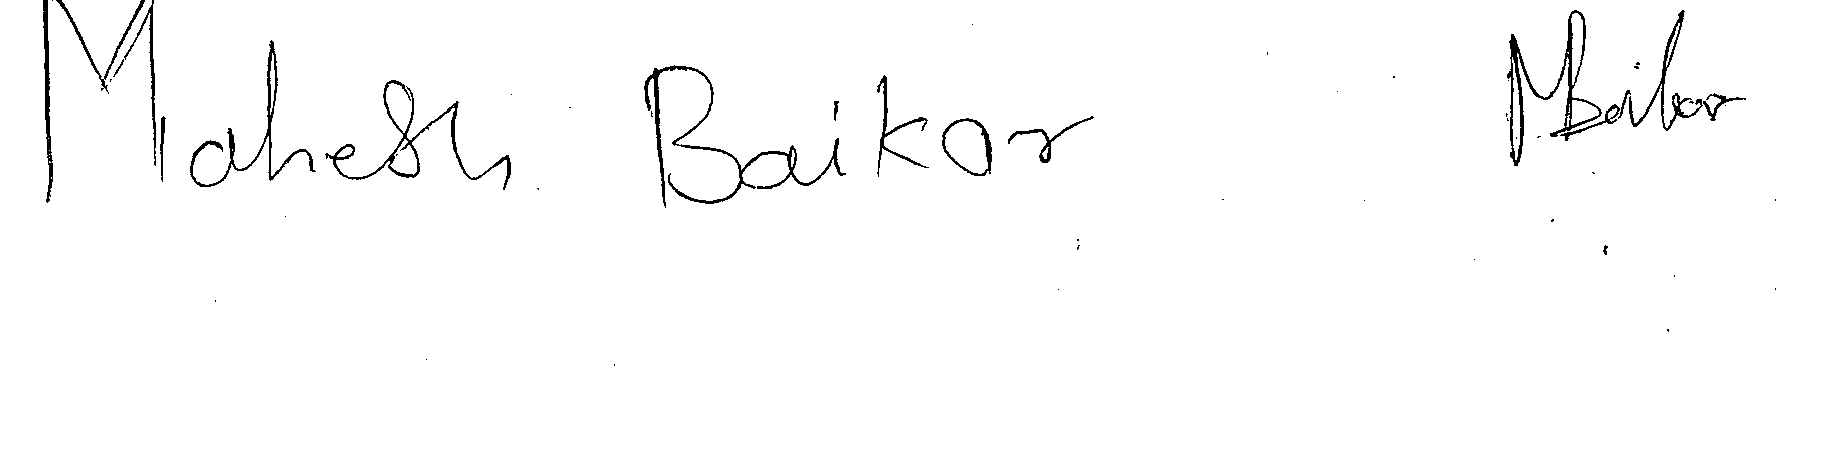 Mahesh Baikar MBaikar